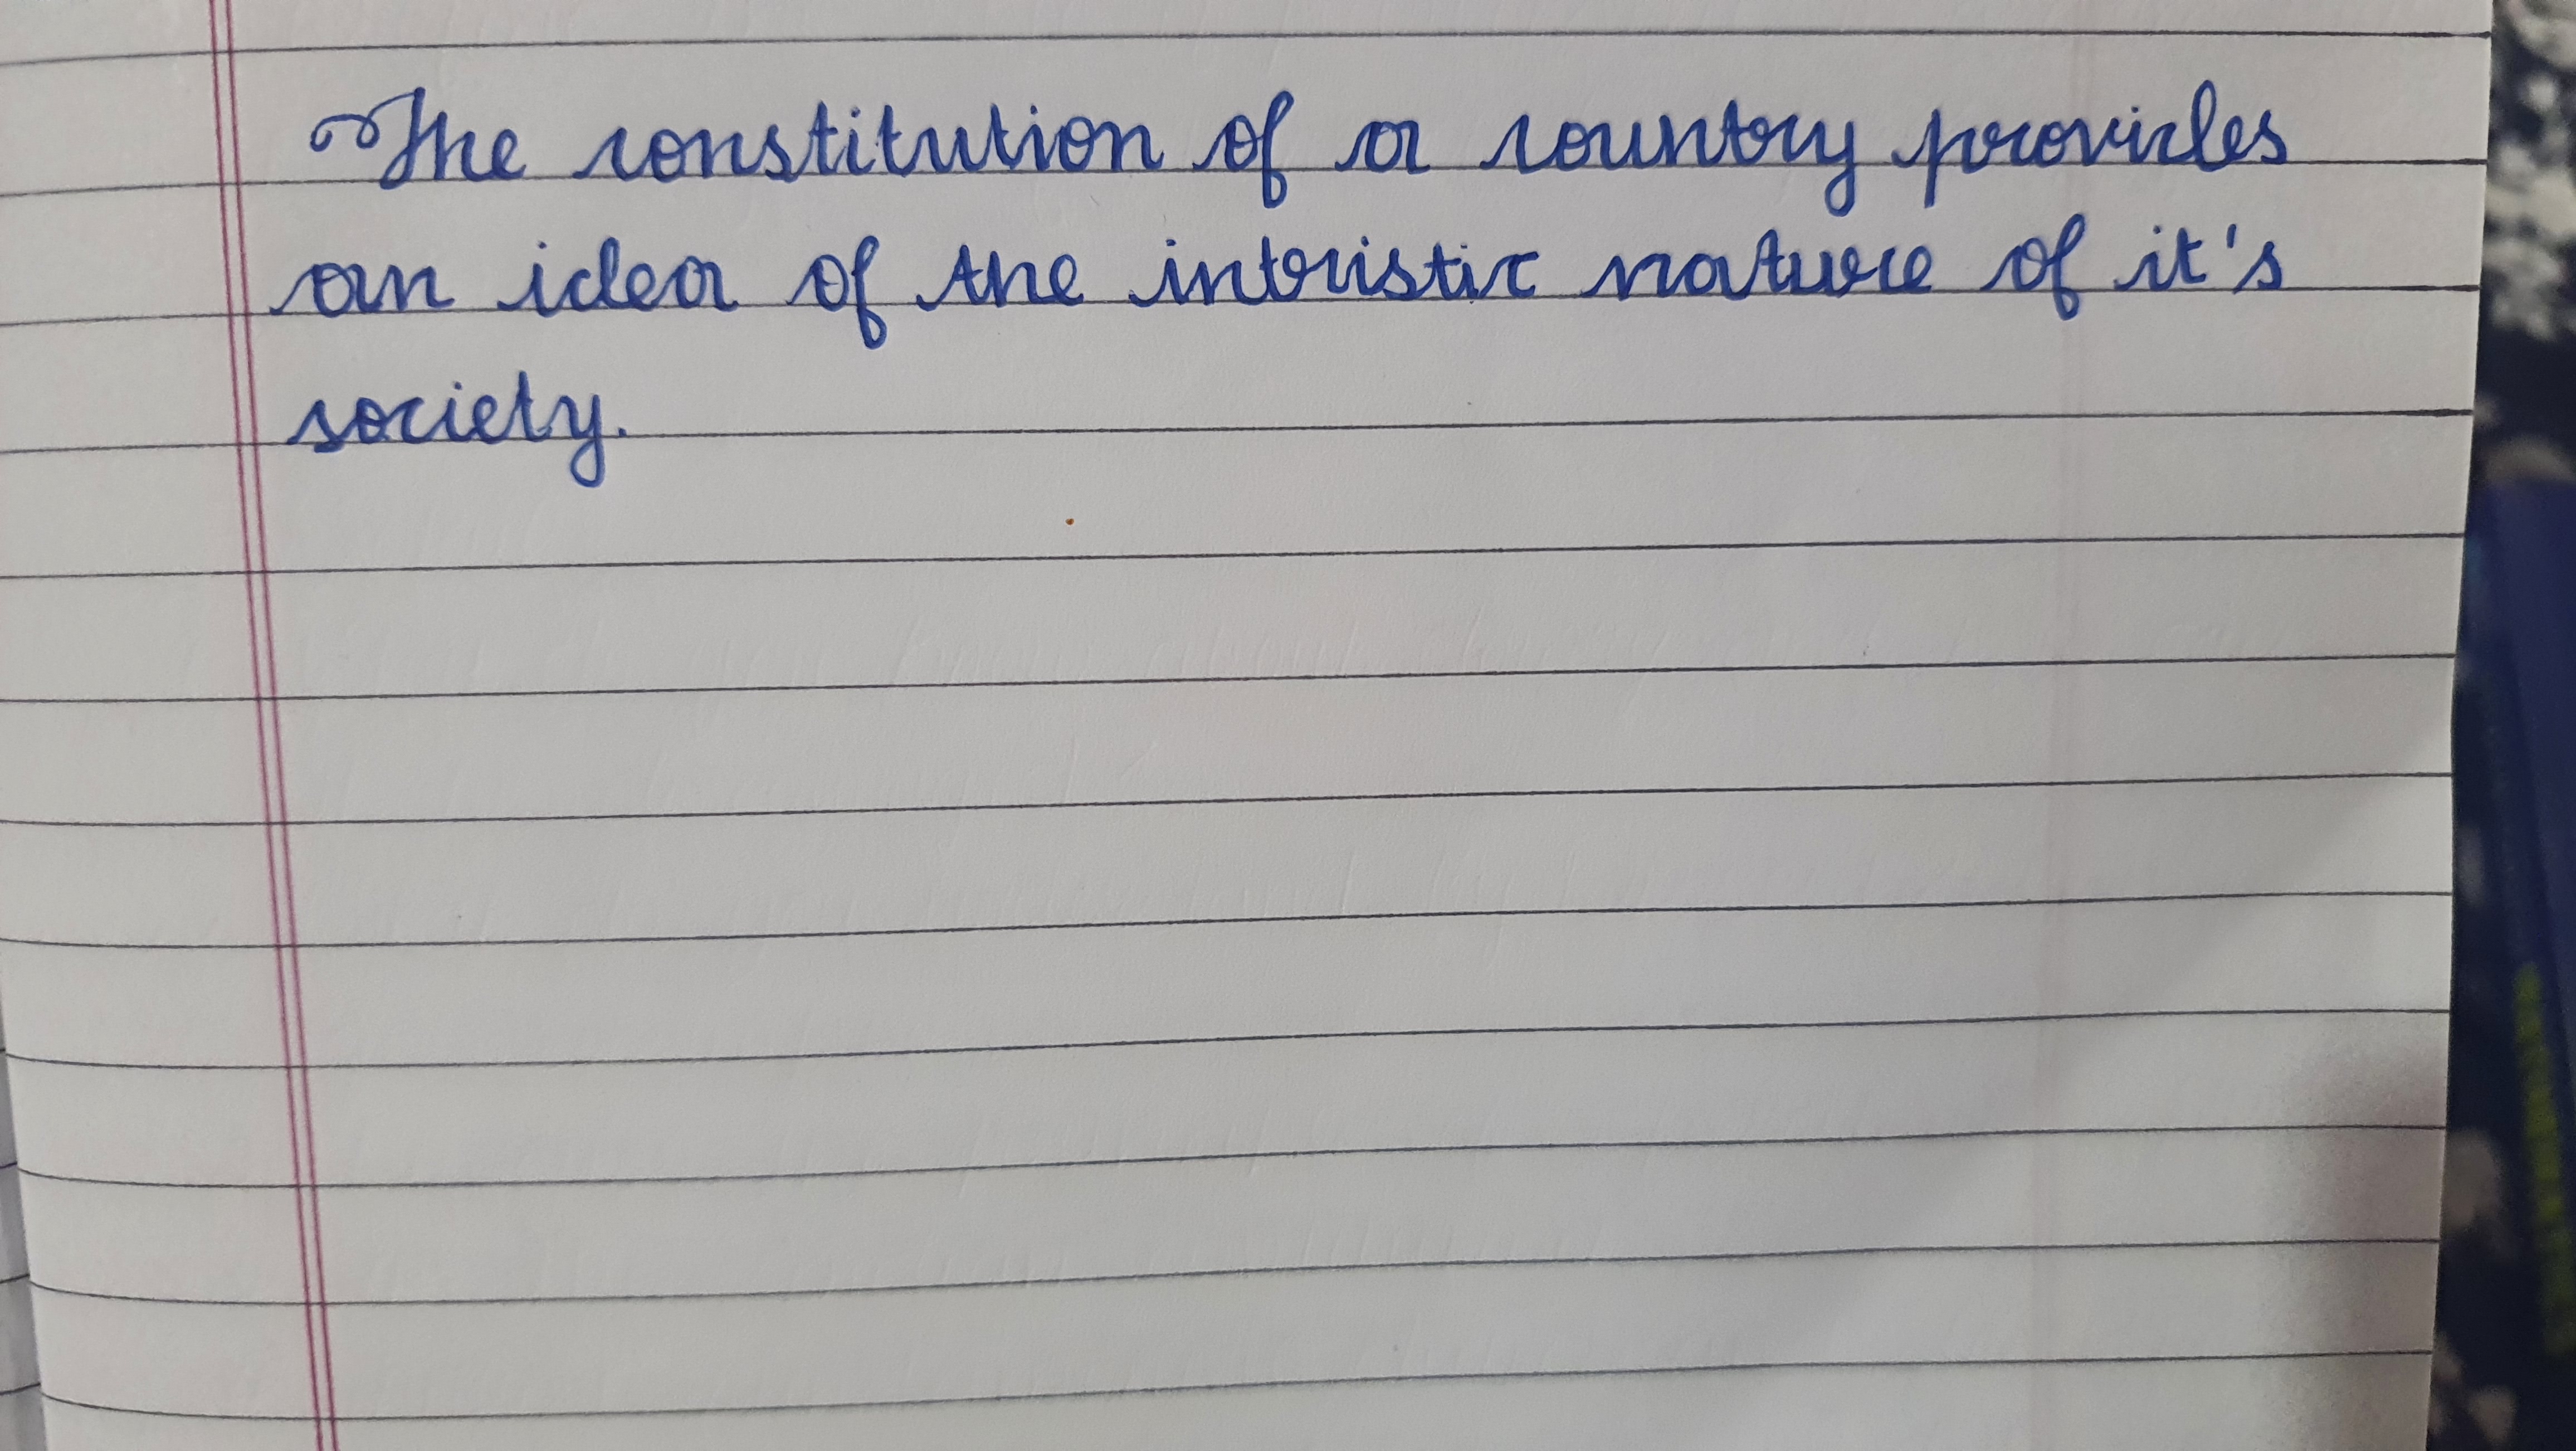 The constitution of a country provides
an idea of the intristic nature of it's
society.